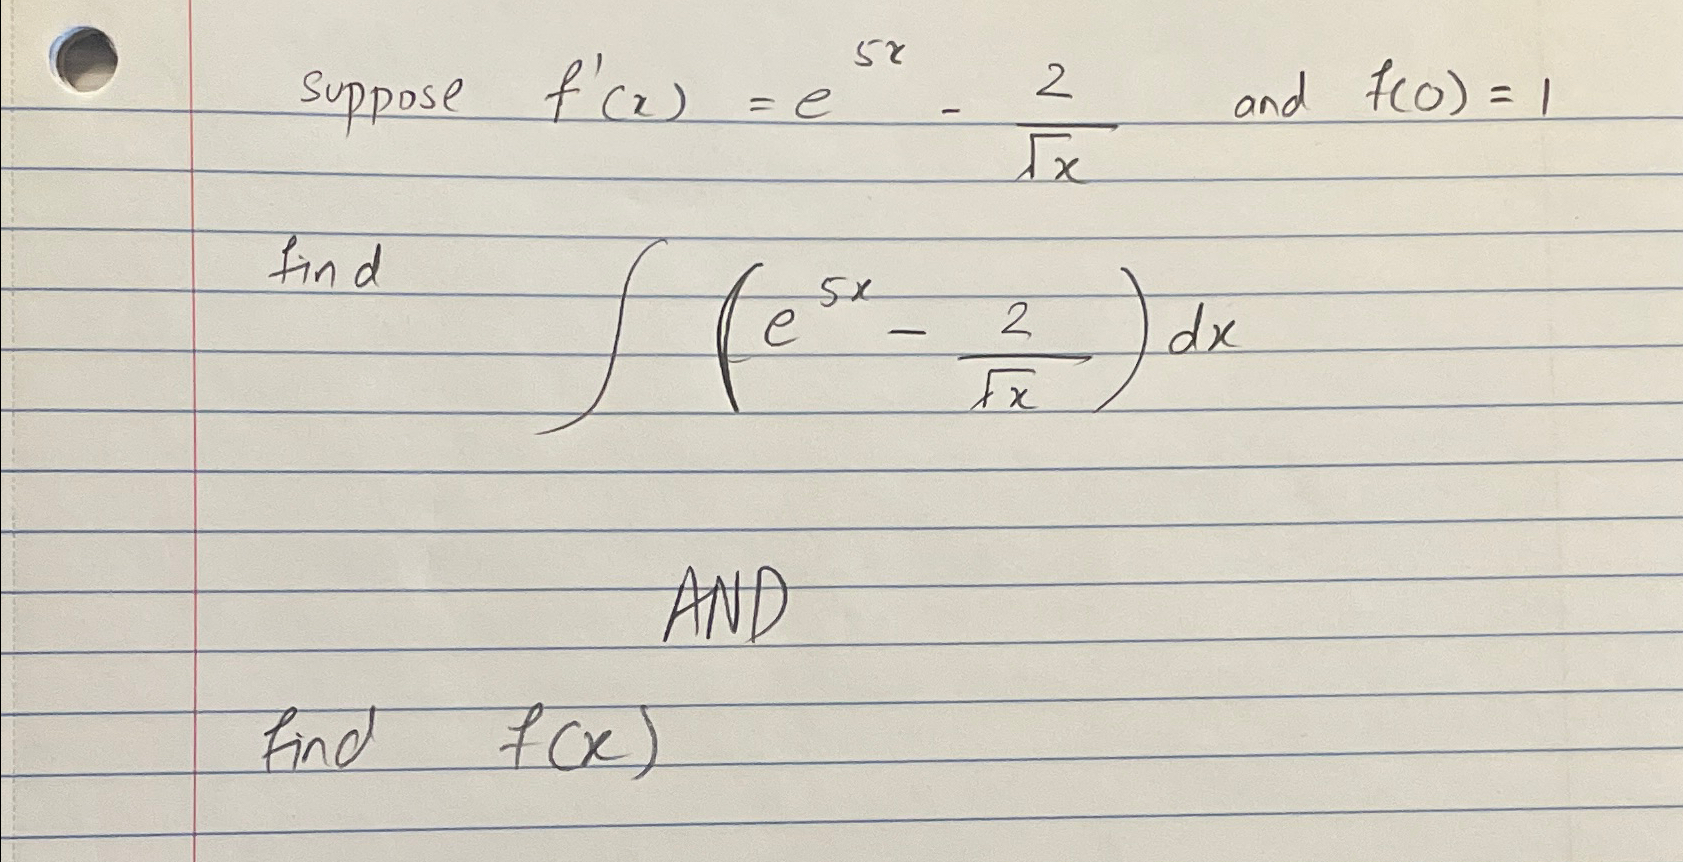 suppose f'(x) = e^{5x} - \frac{2}{\sqrt{x}} and f(0) = 1
find \int \left( e^{5x} - \frac{2}{\sqrt{x}} \right) dx
AND
find f(x)